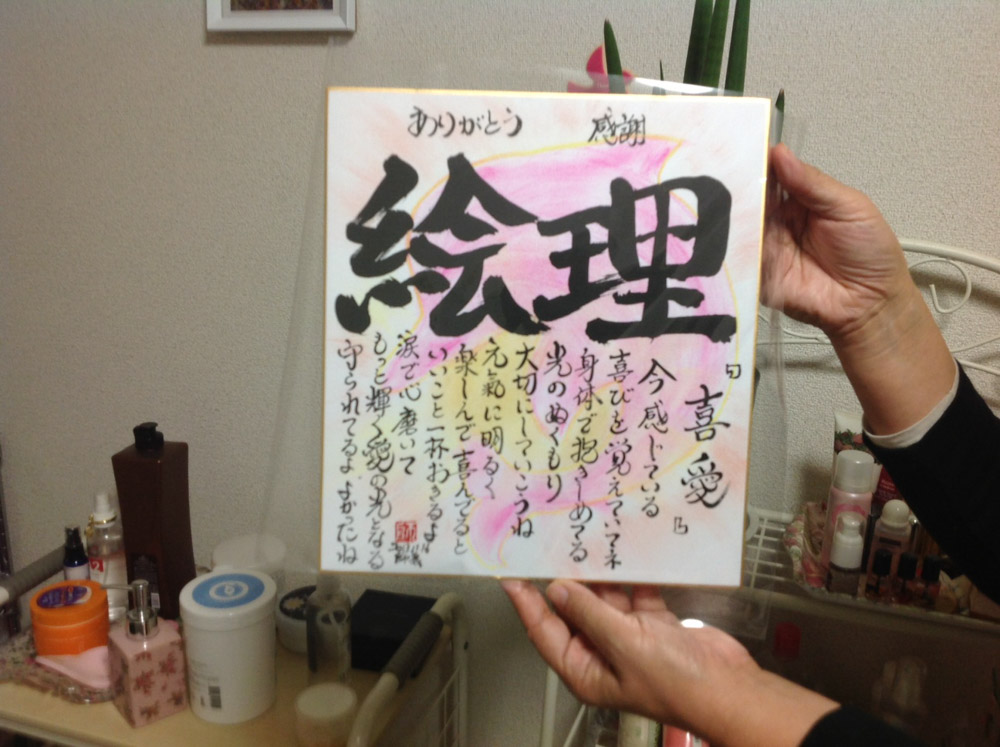 ありがとう 感謝
絵理
「喜愛」
今感じている
喜びを覚えていてネ
身体で抱きしめてる
光のぬくもり
大切にしていこうね
元氣に明るく
楽しんで喜んでると
いいこと一杯おきるよ
涙で心磨いて
もっと輝く愛の光となる
守られてるよ よかったね